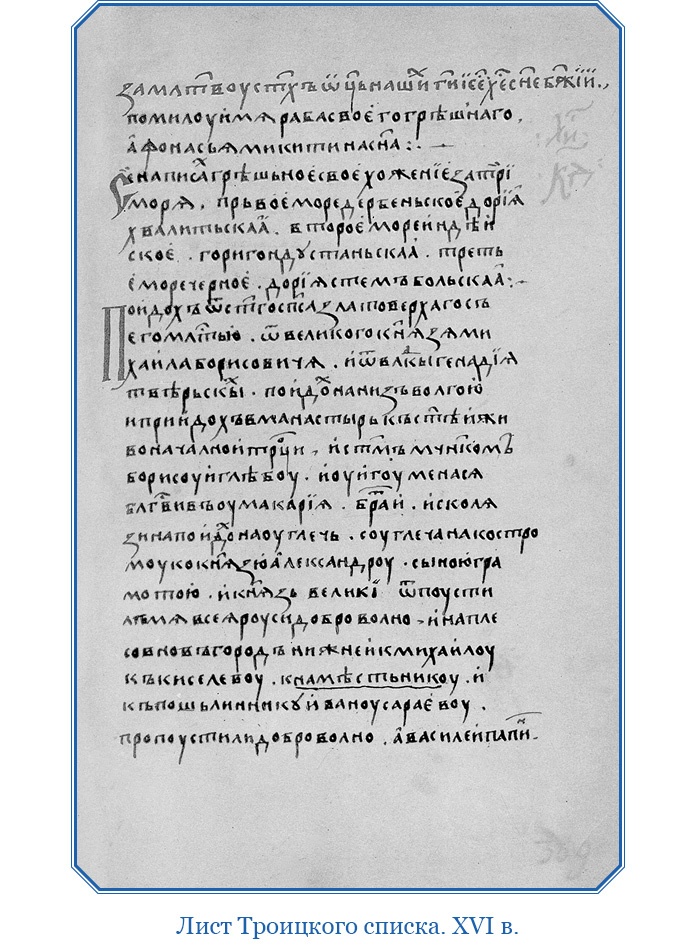 замлⷭ҇твоустꙑⷯъѿц҃ьнашиⷯгⷭ҇иі҃се҃х҃есн҃еб҃жїи.,
помилоуимѧрабасвоегогрѣшⸯнаго.
афонасьѧмикитинасн҃а:·
Сенаписаⷯгрѣшьноесвоехоженїезатрї
морѧ. прьвоеморедербеньскоедорїѧ
хвалитьскаа. второемореиндѣи
ское. горигондустаньскаа. треть
еморечерное. дорїѧстемъбольскаа:·
Поидохъѿст҃госпⷭ҇азлатоверхагосъ
егомлⷭ҇тью. ѿвеликогокнѧзѧми
хаилаборисовичѧ. иѿвлⷣкыгенадїѧ
твѣрьскыⷯ. поидоⷯнанизъволгою
иприидохъвманастырькъст҃ѣижи
воначалноитроци. ист҃мъмчн҃комъ
борисоуиглѣбоу. иоуигоуменасѧ
блг҃вивъоумакарїѧ. браⷮи. исколѧ
зинапоидоⷯнаоуглечь. соуглечанакостро
моукокнѧзюалександроу. сыноюгра
мотою. икнѧзь великїи ѿпоусти
лъмѧвсеѧроусидоброволно. инапле
совновъгородънижнеикмихаилоу
ккиселевоу. кнамѣстьникоу. и
къпошьлинникуиваноусараевоу.
пропоустилидоброволно. авасилеипапиⷩ.
309
Лист Троицкого списка. XVI в.